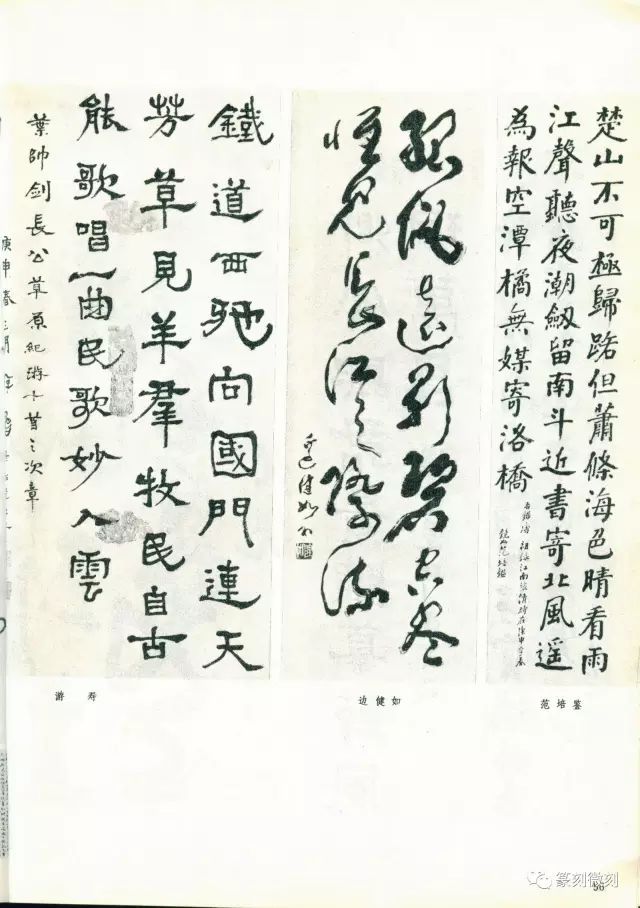 楚山不可極歸路但蕭條海色晴看雨
江聲聽夜潮劔留南斗近書寄北風遥
為報空潭橘無媒寄洛橋
孤帆遠影碧空盡
惟見長江天際流
鐵道西馳向國門連天
芳草見羊羣牧民自古
能歌唱一曲民歌妙入雲
葉帥劍長公草原紀游十首之次章
庚申春三月
范培鉴
边健如
游寿
篆刻微刻
96